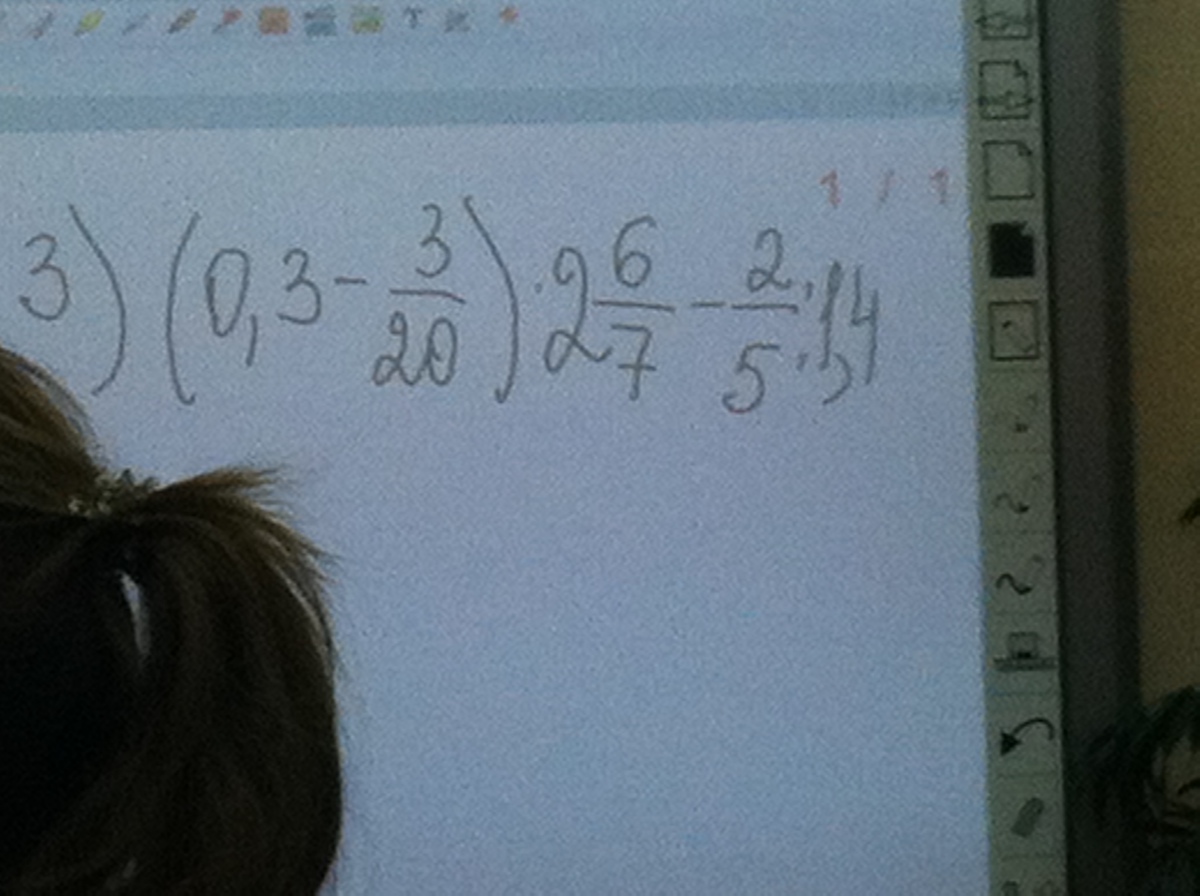 1 / 1
3) (0,3 - 3/20) · 2 6/7 - 2/5 : 1,4